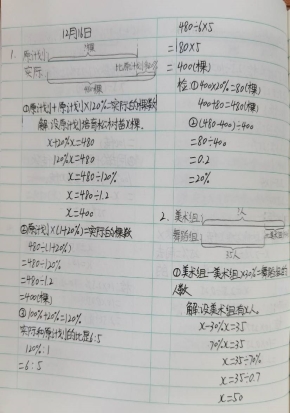 12月16日
1. 原计划
?棵
实际
比原计划多20%
480棵
①原计划+原计划×120%=实际的棵数
解:设原计划 x棵。
x+20%x=480
120%x=480
x=480÷120%
x=480÷1.2
x=400
②原计划×(1+20%)=实际的棵数
480÷(1+20%)
=480÷120%
=480÷1.2
=400(棵)
③100%+20%=120%
实际和原计划的比是6:5
120%:1
=6:5
480÷6×5
=80×5
=400(棵)
检:①400×20%=80(棵)
400+80=480(棵)
②(480-400)÷400
=80÷400
=0.2
=20%
2. 美术组
?人
舞蹈组
35人
①美术组-美术组×30%=舞蹈组的
人数
解:设美术组有x人。
x-30%x=35
70%x=35
x=35÷70%
x=35÷0.7
x=50